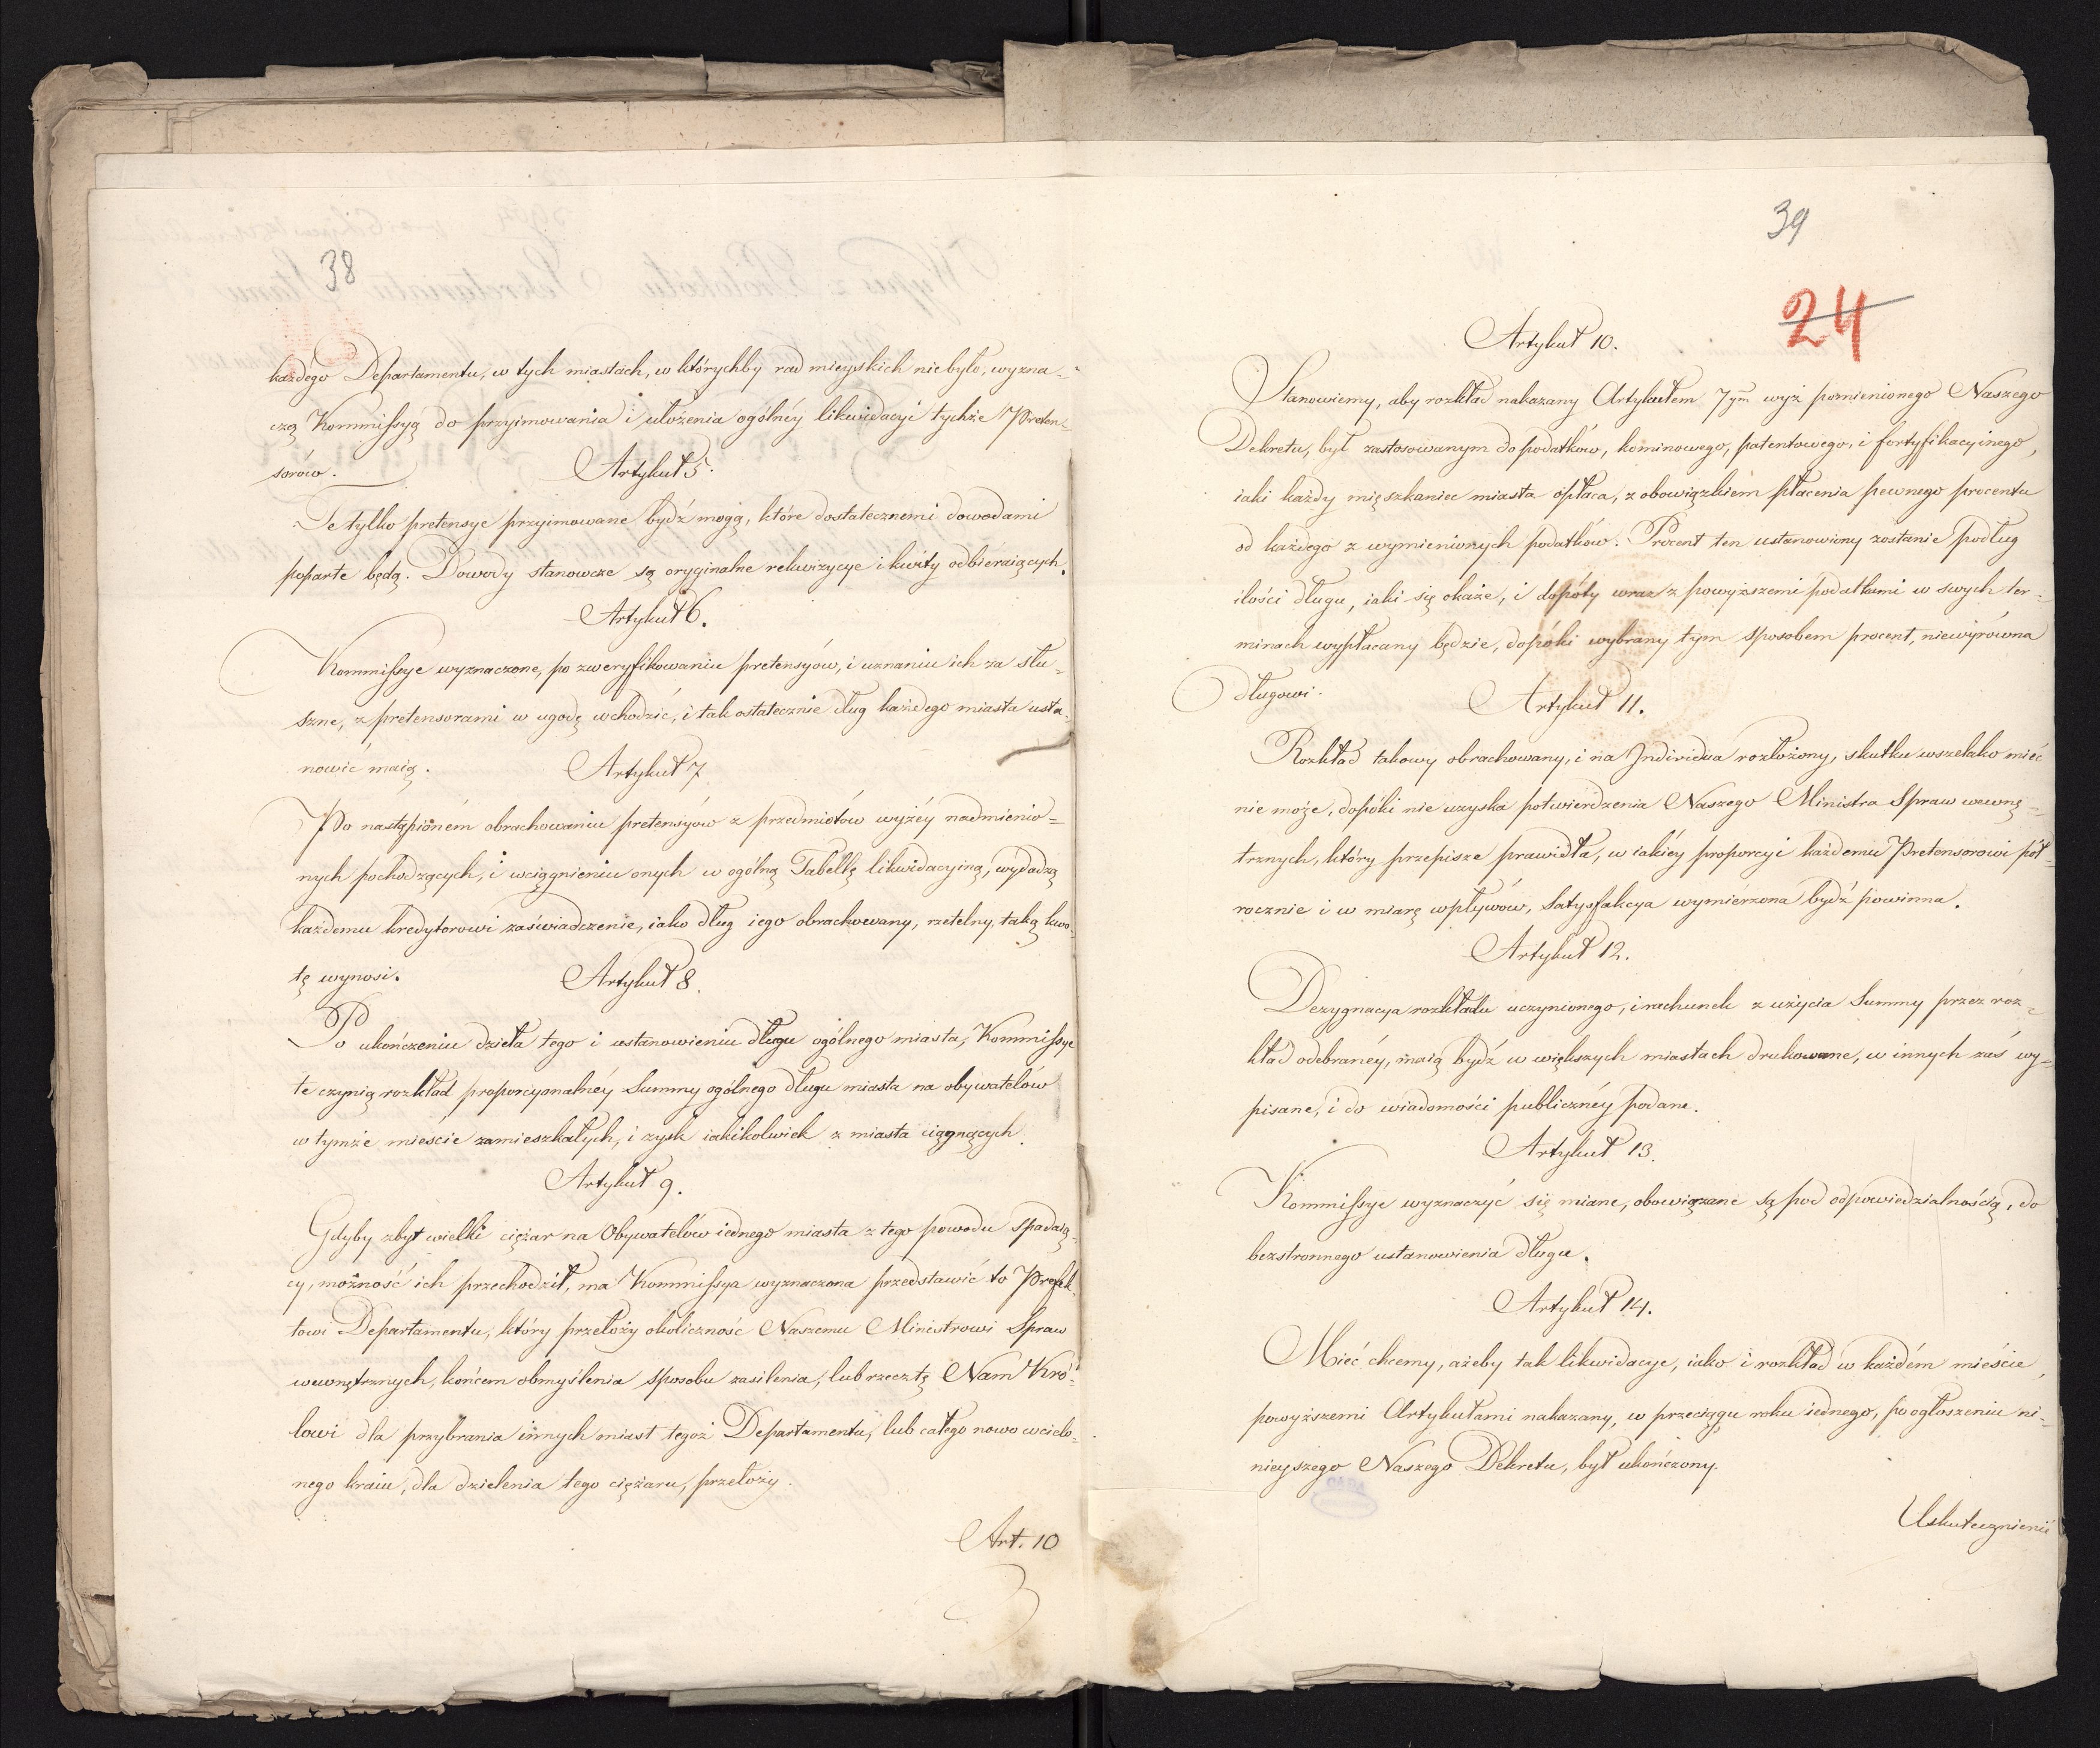 38
każdego Departamentu, w tych miastach, w którychby rad mieyskich niebyło, wyzna-
czą Kommissyą do przyimowania i ułożenia ogólnéy likwidacyi tychże Preten-
sorów. Artykuł 5.
Te tylko pretensye przyimowane bydź mogą, które dostatecznemi dowodami
poparte będą. Dowody stanowcze są oryginalne rekwizycye i kwity odbieraiących.
Artykuł 6.
Kommissye wyznaczone, po zweryfikowaniu pretensyów, i uznaniu ich za słu-
szne, z pretensorami w ugodę wchodzić, i tak ostatecznie dług każdego miasta usta-
nowić maią. Artykuł 7
Po nastąpioném obrachowaniu pretensyów z przedmiotów wyżéy nadmienio-
nych pochodzących, i wciągnieniu onych w ogólną Tabellę likwidacyiną, wydadzą
każdemu kredytorowi zaświadczenie, iako dług iego obrachowany, rzetelny, taką kwo-
tę wynosi. Artykuł 8.
Po ukończeniu dzieła tego i ustanowieniu długu ogólnego miasta, Kommissye
te czynią rozkład proporcyonalnéy Summy ogólnego długu miasta na obywatelów
w tymże mieście zamieszkałych, i zysk iakikolwiek z miasta ciągnących.
Artykuł 9.
Gdyby zbyt wielki ciężar na Obywatelów iednego miasta z tego powodu spadaią-
cy, możność ich przechodził, ma Kommissya wyznaczona przedstawić to Prefek-
towi Departamentu, który przełoży okoliczność Naszemu Ministrowi Spraw
wewnętrznych, końcem obmyślenia sposobu zasilenia, lub rzecz tę Nam Kró-
lowi dla przybrania innych miast tegoż Departamentu, lub całego nowo wcielo-
nego kraiu, dla dzielenia tego ciężaru, przełoży.
Art. 10
39
24
Artykuł 10.
Stanowiemy, aby rozkład nakazany Artykułem 7ym wyż pomienionego Naszego
Dekretu, był zastosowanym do podatków, kominowego, patentowego, i fortyfikacyinego,
iaki każdy mięszkaniec miasta opłaca, z obowiązkiem płacenia pewnego procentu
od każdego z wymienionych podatków. Procent ten ustanowiony zostanie podług
ilości długu, iaki się okaże, i dopóty wraz z powyższemi podatkami w swych ter-
minach wypłacany będzie, dopóki wybrany tym sposobem procent, niewyrówna
długowi. Artykuł 11.
Rozkład takowy obrachowany, i na Individua rozłożony, skutku wszelako mieć
nie może, dopóki nie uzyska potwierdzenia Naszego Ministra Spraw wewnę-
trznych, który przepisze prawidła, w iakiéy proporcyi każdemu Pretensorowi pół-
rocznie i w miarę wpływów, Satysfakcya wymiérzona bydź powinna.
Artykuł 12.
Dezygnacya rozkładu uczynionego, i rachunek z użycia Summy przez roz-
kład odebranéy, maią bydź w większych miastach drukowane, w innych zaś wy-
pisane, i do wiadomości publicznéy podane.
Artykuł 13.
Kommissye wyznaczyć się miane, obowiązane są pod odpowiedzialnością, do
bezstronnego ustanowienia długu.
Artykuł 14.
Mieć chcemy, ażeby tak likwidacye, iako i rozkład w każdém mieście,
powyższemi Artykułami nakazany, w przeciągu roku iednego, po ogłoszeniu ni-
nieyszego Naszego Dekretu, był ukończony.
Uskutecznienie